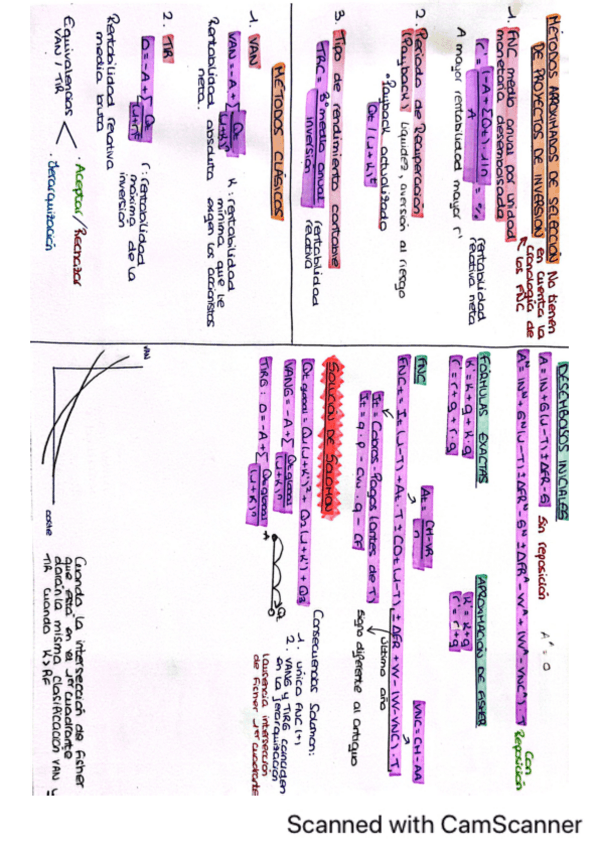 MÉTODOS APROXIMADOS DE SELECCIÓN
DE PROYECTOS DE INVERSIÓN
No tienen
en cuenta la
cronología de
los FNC
1. FNC medio anual por unidad
monetaria desembolsada
rentabilidad
relativa neta
A mayor rentabilidad mayor r'
2. Período de Recuperación
(Payback) liquidez, aversión al riesgo
payback actualizado
Qt / (1+K)^t
3. Tipo de rendimiento contable
TRC = Bº medio anual
inversión
rentabilidad
relativa
MÉTODOS CLÁSICOS
1. VAN
VAN = -A + Σ Qt
(1+K)^t
K: rentabilidad
mínima que le
exigen los accionistas
Rentabilidad absoluta
neta.
2. TIR
0 = -A + Σ Qt
(1+r)^t
r: rentabilidad
máxima de la
inversión
Rentabilidad relativa
media bruta
Equivalencias
VAN / TIR
· Aceptar / Rechazar
· Jerarquización
DESEMBOLSOS INICIALES
Sin reposición
Con
Reposición
FÓRMULAS EXACTAS
K' = K + g + K · g
r' = r + g + r · g
APROXIMACIÓN DE FISHER
K' = K + g
r' = r + g
FNC
At = CH-VR
n
VNC = CH - AA
último año
It = Cobros - Pagos (antes de T)
It = q · p - cvu · q - CF
Signo diferente al antiguo
SOLUCIÓN DE SOLOMON
VANG = -A + Σ Qt global
(1+K)^n
TIRG: 0 = -A + Σ Qt global
(1+K)^n
Consecuencias Solomon:
1. único FNC (+)
2. VANG y TIRG coinciden
en la jerarquización
(ausencia intersección
de Fisher 1er cuadrante
VAN
Cuando la intersección de Fisher
que está en el 1er cuadrante
darán la misma clasificación VAN y
TIR cuando K > RF
Scanned with CamScanner